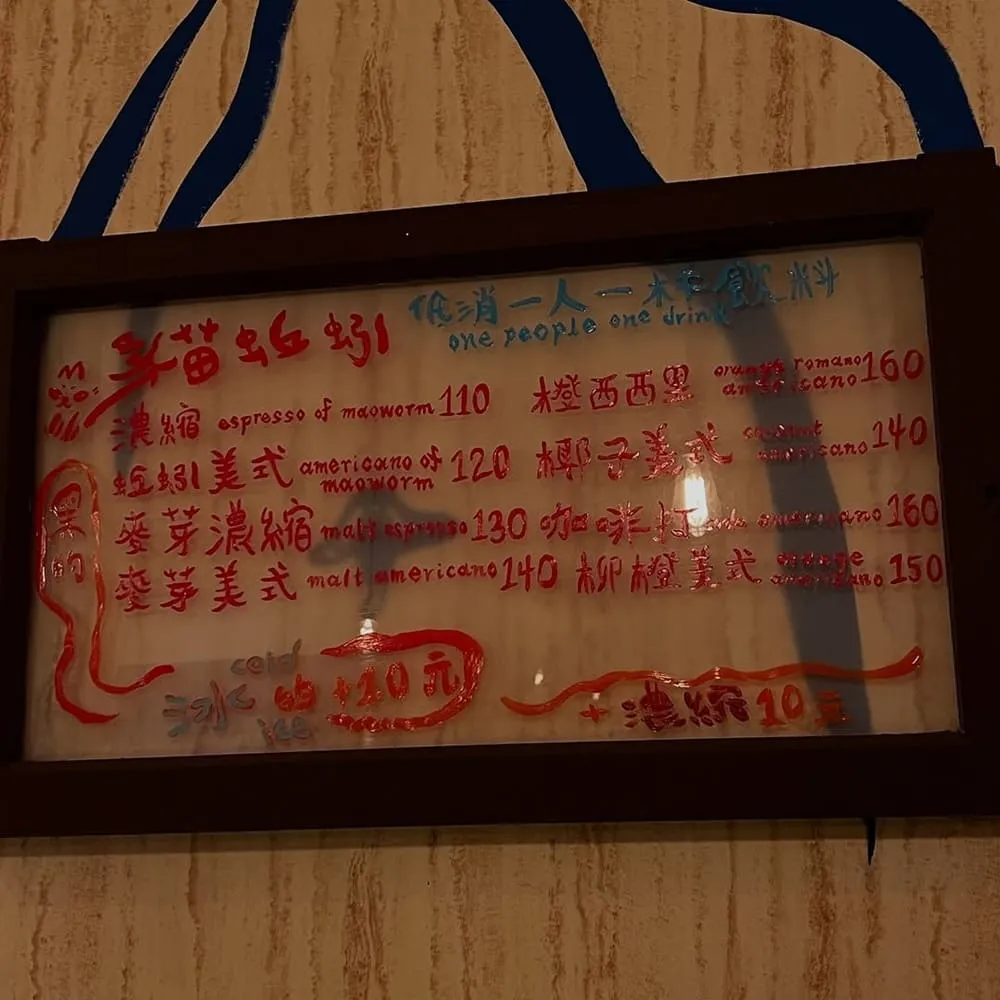 低消一人一杯飲料
one people one drink
貓蚯蚓
黑的
濃縮 espresso of maoworm 110
蚯蚓美式 americano of maoworm 120
麥芽濃縮 malt espresso 130
麥芽美式 malt americano 140
橙西西里 orange romano americano 160
椰子美式 coconut americano 140
咖啡打 americano 160
柳橙美式 orange americano 150
cold
冰的+10元
ice
+濃縮10元